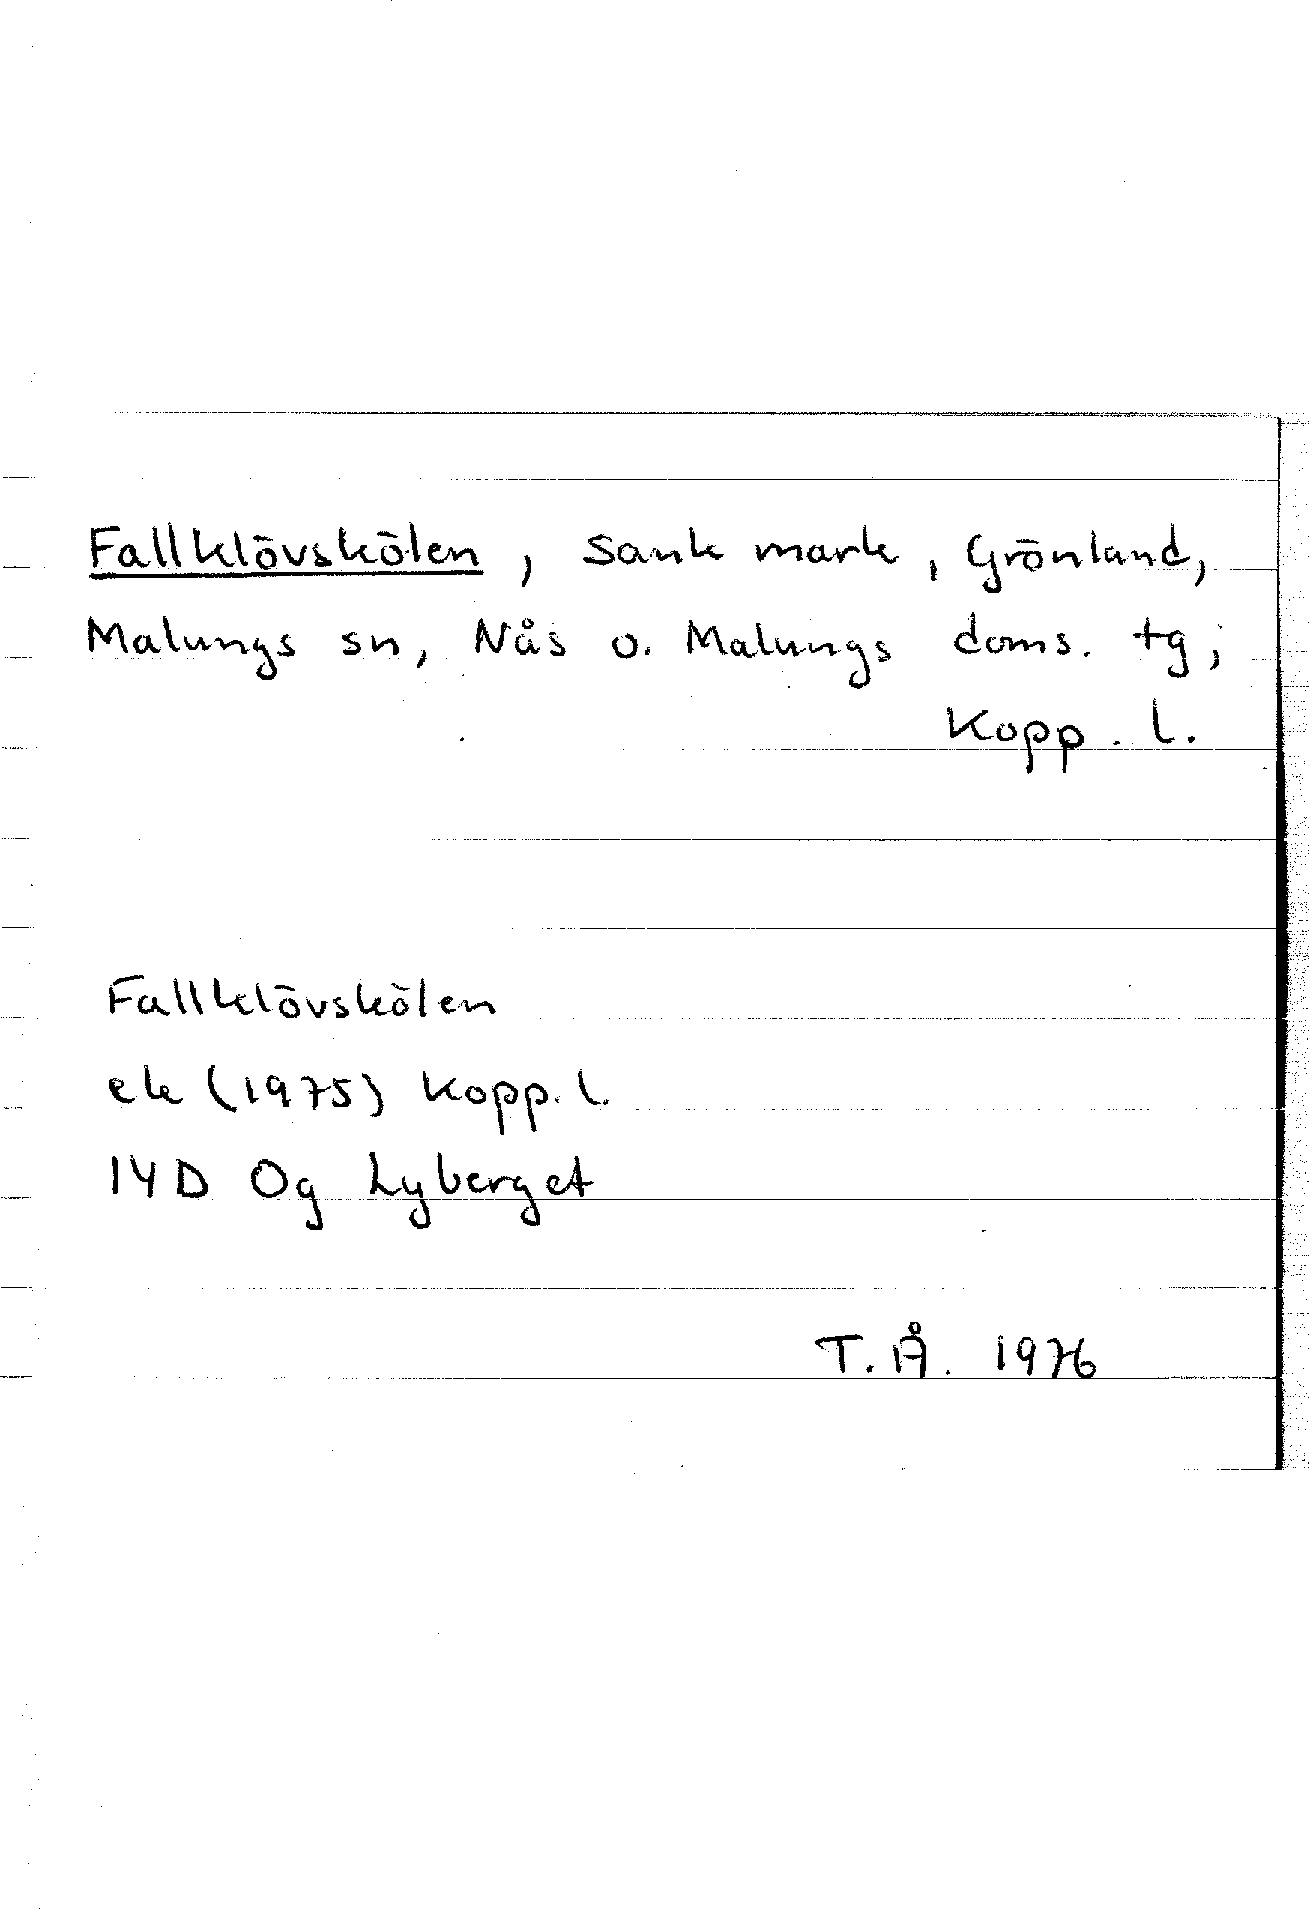 Fallklövskölen, Sank mark, Grönland,
Malungs sn, Nås o. Malungs doms. tg,
Kopp. l.
Fallklövskölen
ek (1975) Kopp. l.
14D 0g Lyberget
T.Å. 1976